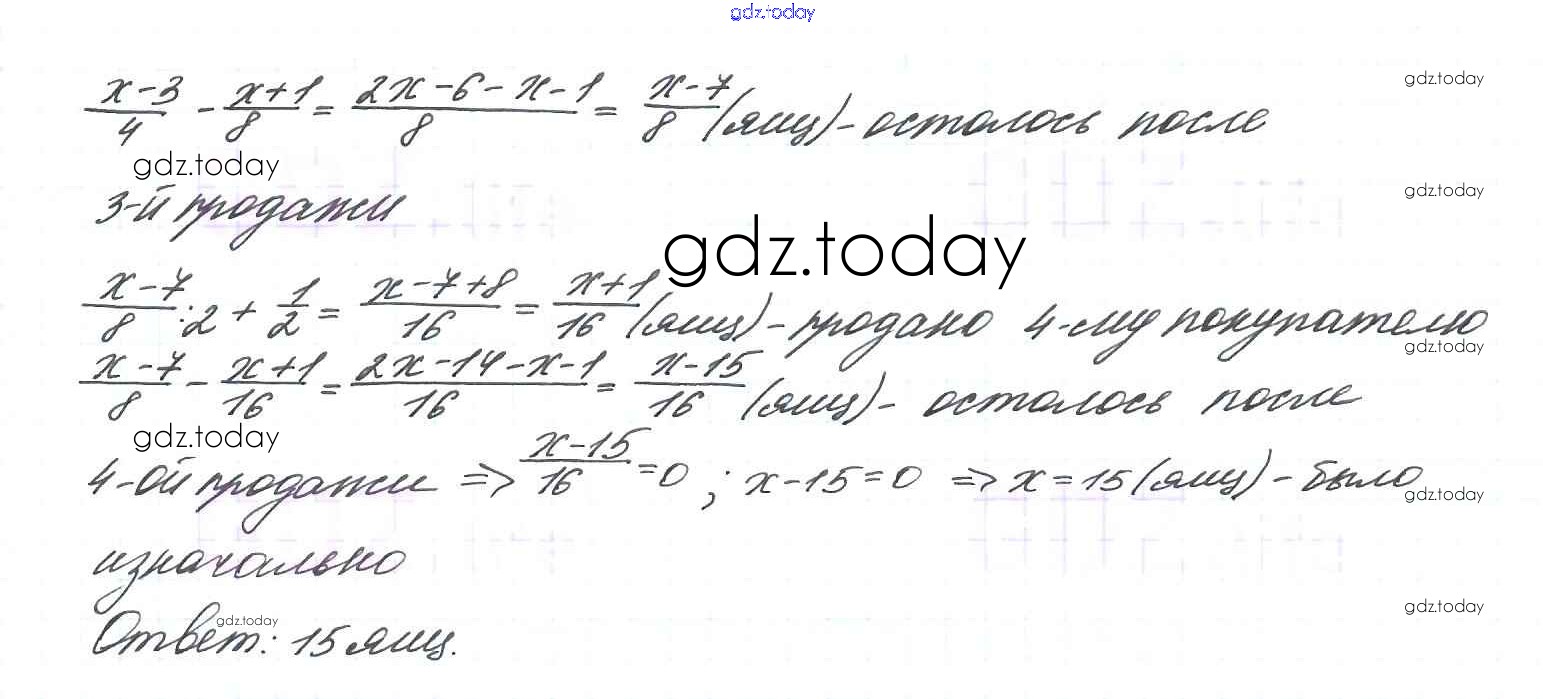 gdz.today
(x-3)/4 - (x+1)/8 = (2x-6-x-1)/8 = (x-7)/8 (ящ) - осталось после
gdz.today
gdz.today
3-й продажи
gdz.today
gdz.today
(x-7)/8 :2 + 1/2 = (x-7+8)/16 = (x+1)/16 (ящ) - продано 4-му покупателю
gdz.today
(x-7)/8 - (x+1)/16 = (2x-14-x-1)/16 = (x-15)/16 (ящ) - осталось после
gdz.today
4-ой продажи => (x-15)/16 =0 ; x-15=0 => x=15 (ящ) - было
gdz.today
изначально
gdz.today
gdz.today
Ответ: 15 ящ.